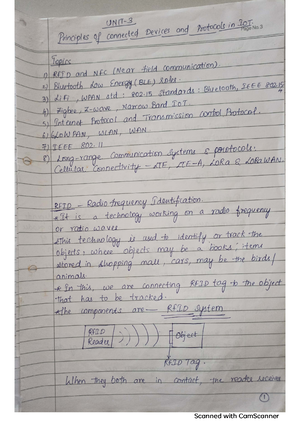 UNIT-3
Principles of connected Devices and Protocols in IOT
Topics
1) RFID and NFC (Near field communication)
2) Bluetooth Low Energy (BLE) Roles
3) LiFi, WPAN std : 802.15 standards : Bluetooth, IEEE 802.15
4) Zigbee, Z-wave, Narrow Band IoT.
5) Internet Protocol and Transmission control Protocol.
6) 6LOWPAN, WLAN, WAN
7) IEEE 802.11
8) Long-range Communication Systems & protocols:
Cellular Connectivity - LTE, LTE-A, LORa & LORaWAN.
RFID - Radio frequency Identification.
* It is a technology working on a radio frequency
or radio waves
* This technology is used to identify or track the
objects : where objects may be a books, items
stored in shopping mall, cars, may be the birds/
animals
* In this, we are connecting RFID tag to the object
that has to be tracked.
* The components are - RFID System
RFID
Reader
Object
RFID Tag.
When they both are in contact, the reader
1
Scanned with CamScanner